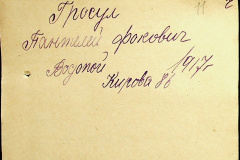 Гросул 11
Пантелей Фокович
Водопой 1917г
Кирова 86